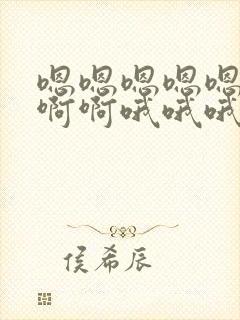 嗯嗯嗯嗯嗯
啊啊哦哦哦
侯希辰